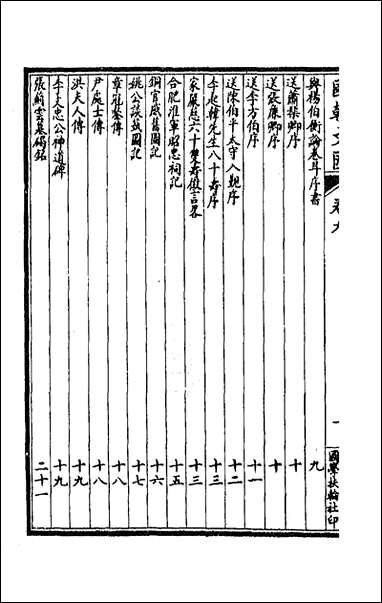 國朝文匯 卷九 一 國學扶輪社印
與楊伯衡論卷耳序書 九
送蕭棐卿序 十
送張廉卿序 十
送李方伯序 十一
送陳伯平太守入覲序 十二
李越韓先生八十壽序 十三
家履忠六十雙壽徵言畧 十三
合肥淮軍昭忠祠記 十五
銅官感舊圖記 十六
姚公談藝圖記 十七
章孔黎傳 十八
尹處士傳 十八
洪夫人傳 十九
李文忠公神道碑 十九
張薊雲墓碣銘 二十一